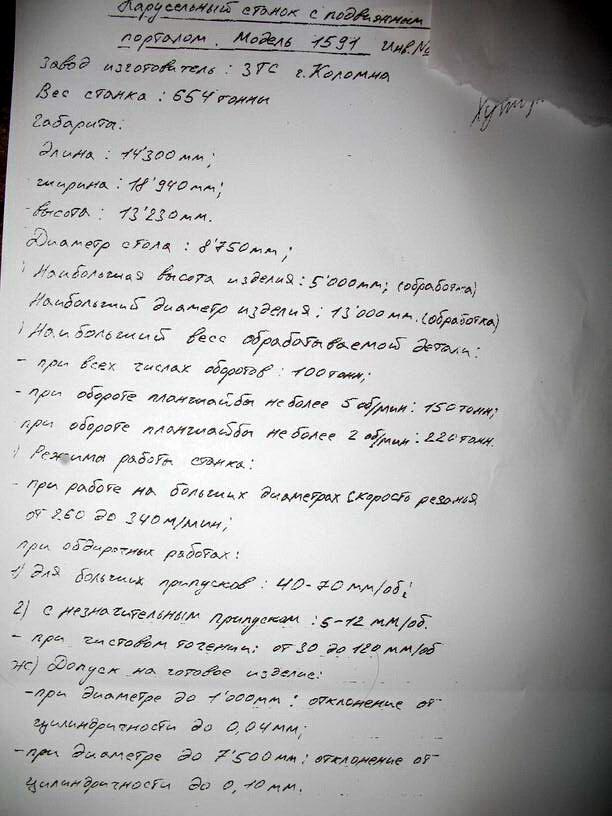 Карусельный станок с подвижным
порталом. Модель 1591 Инв.№
Завод изготовитель: ЗТС г.Коломна
Вес станка: 654 тонны
Габарита:
длина: 14'300мм;
ширина: 18'940мм;
высота: 13'230мм.
Диаметр стола: 8'750мм;
Наибольшая высота изделия: 5'000мм; (обработка)
Наибольший диаметр изделия: 13'000мм. (обработка)
) Наибольший весс обрабатываемой детали:
- при всех числах оборотов: 100тонн;
- при обороте планшайбы не более 5 об/мин: 150тонн;
при обороте планшайбы не более 2 об/мин: 220тонн.
) Режимы работы станка:
- при работе на больших диаметрах скорость резанья
от 260 до 340м/мин;
при обдирочных работах:
1) для больших припусков: 40-70мм/об;
2) с незначительным припуском: 5-12 мм/об.
- при чистовом точении: от 30 до 120 мм/об
ж) Допуск на готовое изделие:
- при диаметре до 1'000мм: отклонение от
цилиндричности до 0,04мм;
- при диаметре до 7'500мм: отклонение от
цилиндричности до 0,10мм.